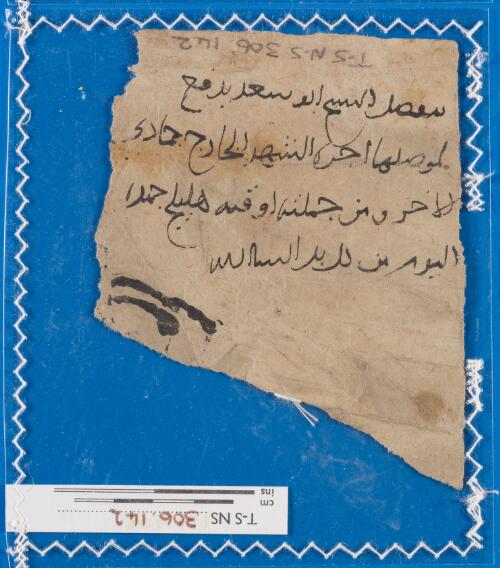 T-S N-S 306.142
يتفضل الشيخ ابو سعد يدفع
لموصلها اجرة الشهر الخارج جمادى
الاخر ومن جملته اوقيه هليلج
اليوم من ان شا الله
ins
cm
T-S NS 306.142